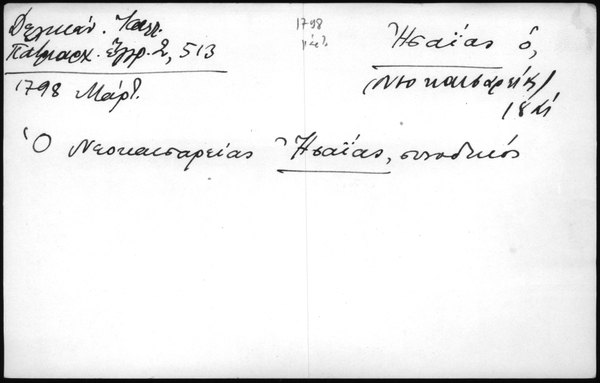 Δελικάν. Καλλ.
Πατριαρχ. Ἔγγρ. 2, 513
1798 Μάρτ.
1798
Μάρτ
Ἠσαΐας ὁ,
(Νεοκαισαρείας)
Ὁ Νεοκαισαρείας Ἠσαΐας, συνοδικός